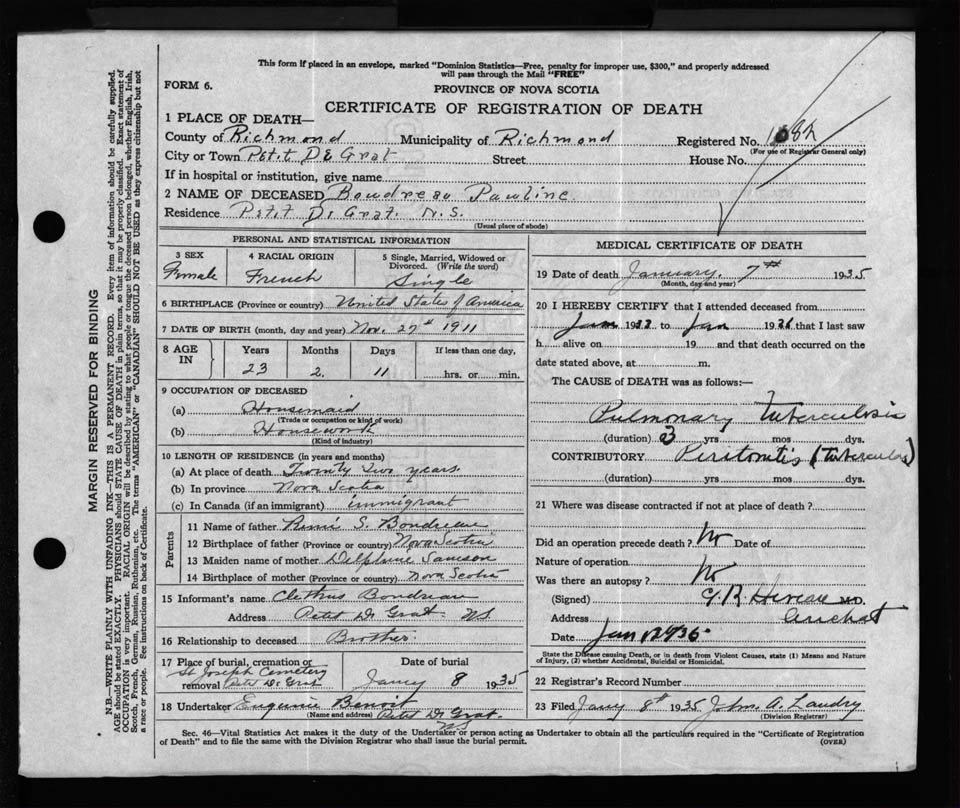 This form if placed in an envelope, marked "Dominion Statistics—Free, penalty for improper use, $300," and properly addressed
will pass through the Mail "FREE"
FORM 6.
PROVINCE OF NOVA SCOTIA
CERTIFICATE OF REGISTRATION OF DEATH
1 PLACE OF DEATH—
County of Richmond Municipality of Richmond Registered No.
(For use of Registrar General only)
City or Town Petit De Grat Street House No.
If in hospital or institution, give name
2 NAME OF DECEASED Boudreau Pauline
Residence Petit De Grat. N.S.
(Usual place of abode)
PERSONAL AND STATISTICAL INFORMATION
3 SEX Female 4 RACIAL ORIGIN French 5 Single, Married, Widowed or Divorced. (Write the word) Single
6 BIRTHPLACE (Province or country) United States of America
7 DATE OF BIRTH (month, day and year) Nov. 27th 1911
8 AGE IN Years 23 Months 2. Days 11 If less than one day, hrs. or min.
9 OCCUPATION OF DECEASED
(a) Housemaid
(Trade or occupation or kind of work)
(b) Housework
(Kind of industry)
10 LENGTH OF RESIDENCE (in years and months)
(a) At place of death Twenty two years
(b) In province Nova Scotia
(c) In Canada (if an immigrant) immigrant
Parents
11 Name of father S. Boudreau
12 Birthplace of father (Province or country) Nova Scotia
13 Maiden name of mother Delphine Samson
14 Birthplace of mother (Province or country) Nova Scotia
15 Informant's name Boudreau
Address Petit De Grat NS
16 Relationship to deceased Brother
17 Place of burial, cremation or removal St Joseph Cemetery Petit De Grat Date of burial Jany 8 1935
18 Undertaker Eugenie Benoit
(Name and address) Petit De Grat NS
MEDICAL CERTIFICATE OF DEATH
19 Date of death January. 7th 1935
(Month, day and year)
20 I HEREBY CERTIFY that I attended deceased from
Jan 19 to Jan 19 that I last saw
h alive on 19 and that death occurred on the
date stated above, at m.
The CAUSE OF DEATH was as follows:—
Pulmonary tuberculosis
(duration) 3 yrs mos dys.
CONTRIBUTORY Peritonitis (tubercular)
(duration) yrs mos dys.
21 Where was disease contracted if not at place of death?
Did an operation precede death? No Date of
Nature of operation
Was there an autopsy? No
(Signed) M.D.
Address Arichat
Date Jan
State the Disease causing Death, or in death from Violent Causes, state (1) Means and Nature
of Injury, (2) whether Accidental, Suicidal or Homicidal.
22 Registrar's Record Number
23 Filed Jany 8th 1935 John. A. Landry
(Division Registrar)
Sec. 46—Vital Statistics Act makes it the duty of the Undertaker or person acting as Undertaker to obtain all the particulars required in the "Certificate of Registration
of Death" and to file the same with the Division Registrar who shall issue the burial permit.
(OVER)
MARGIN RESERVED FOR BINDING
N.B.—WRITE PLAINLY WITH UNFADING INK—THIS IS A PERMANENT RECORD. Every item of information should be carefully supplied.
AGE should be stated EXACTLY. PHYSICIANS should STATE CAUSE OF DEATH in plain terms, so that it may be properly classified. Exact statement of
OCCUPATION is very important. RACIAL ORIGIN will be described by stating to what people or tongue the deceased person belonged, whether English, Irish,
Scotch, French, German, Russian, Ruthenian, etc. The terms "AMERICAN" or "CANADIAN" SHOULD NOT BE USED as they express citizenship but not
a race or people. See instructions on back of Certificate.